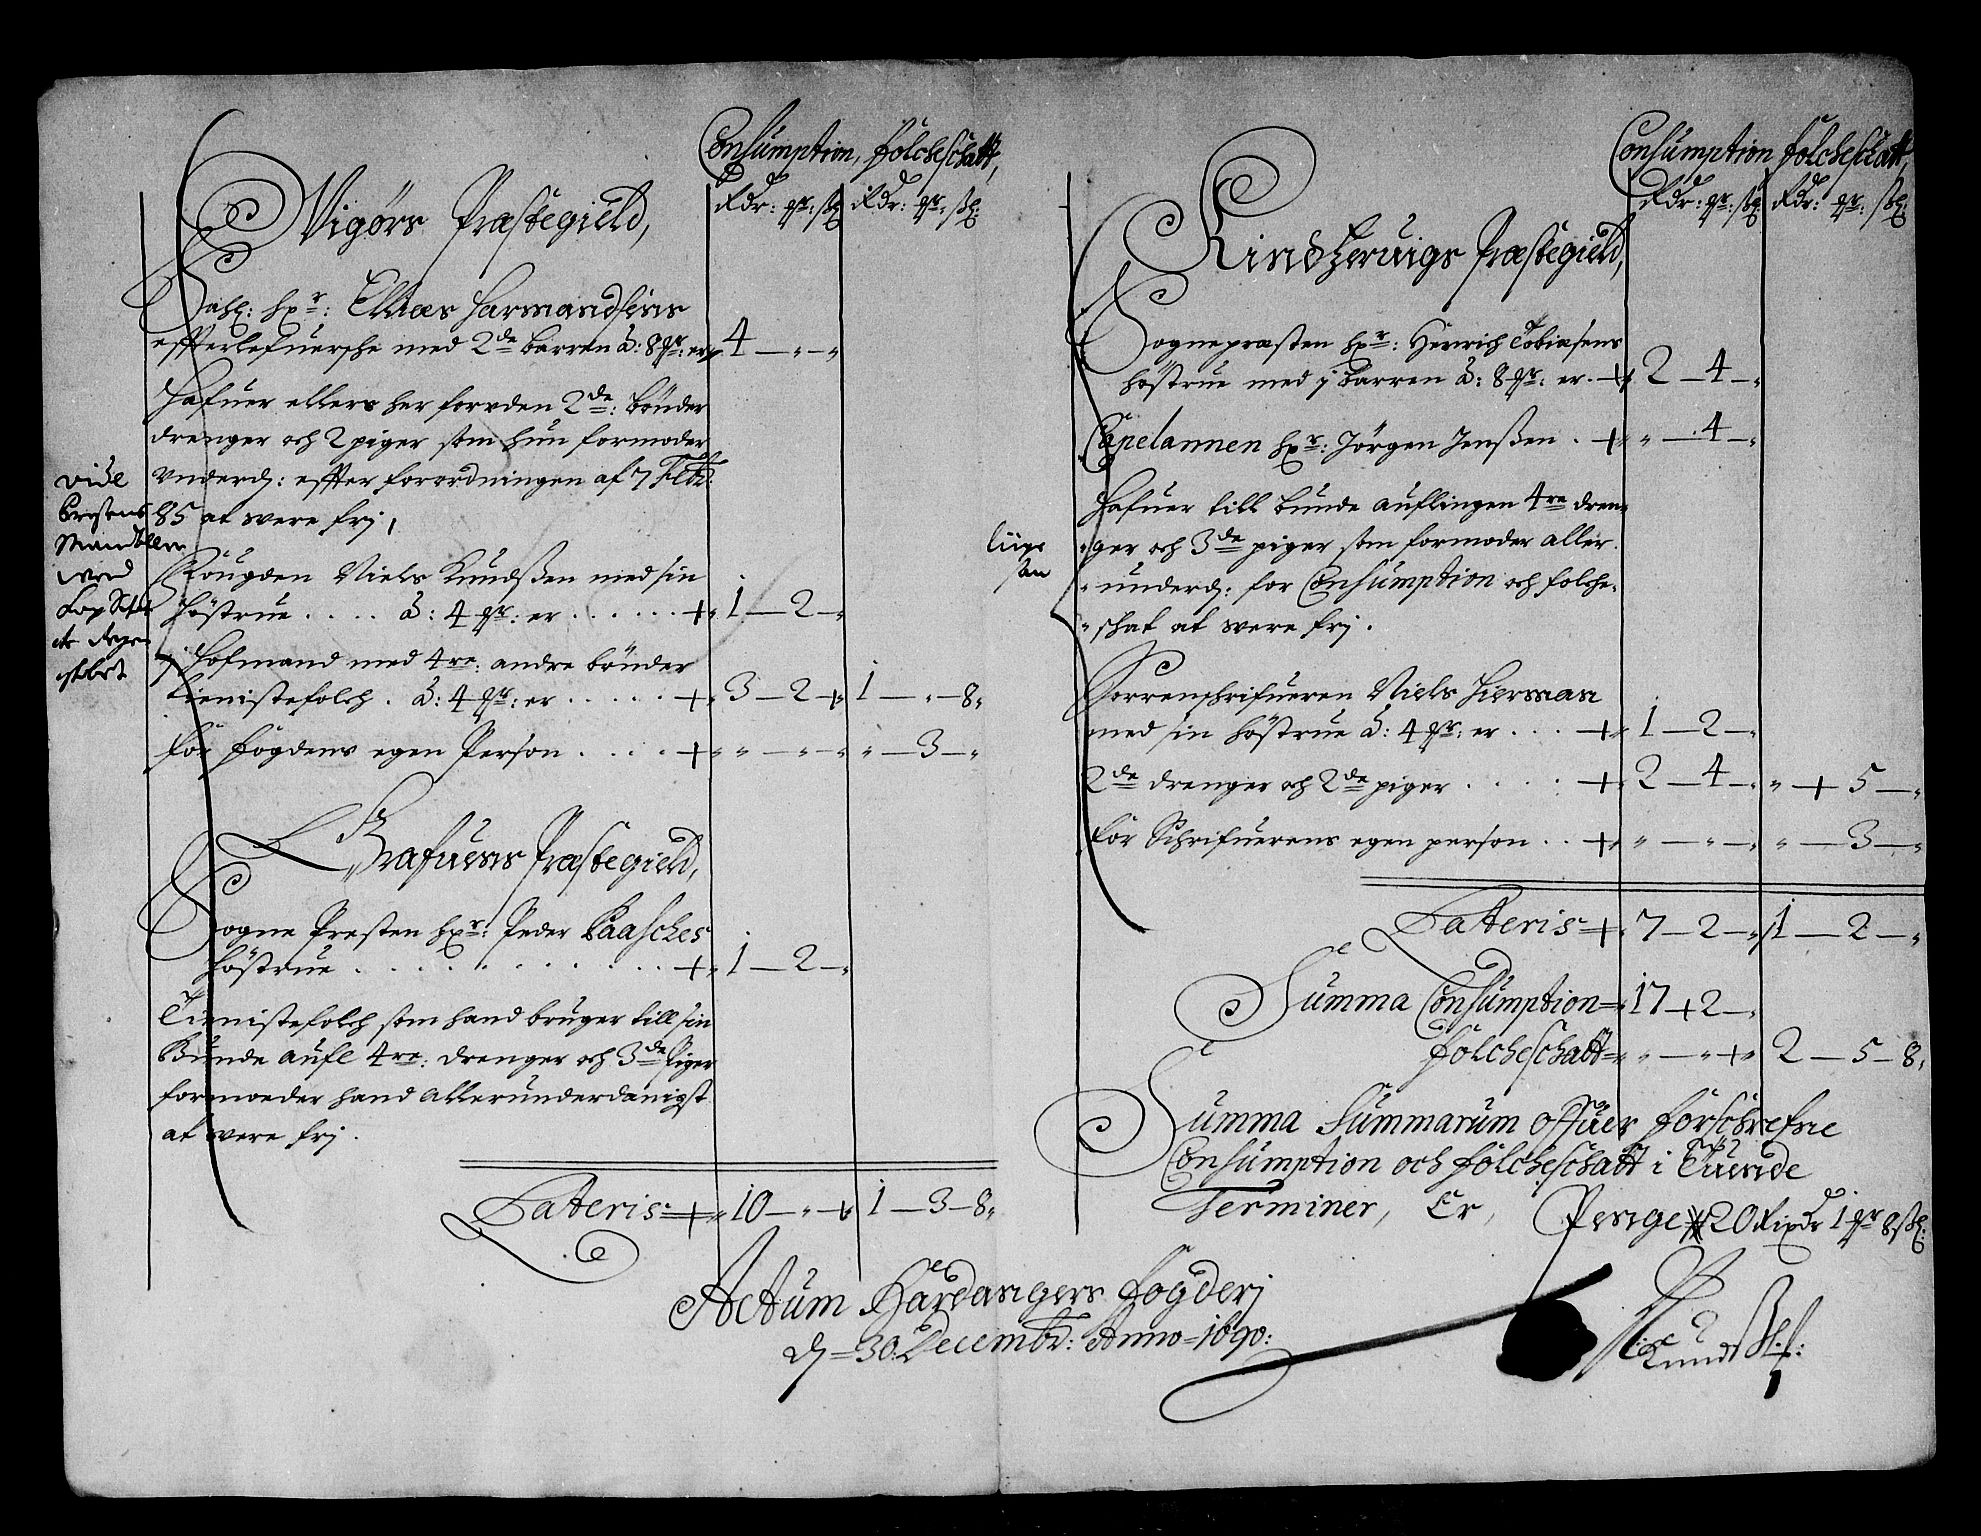 Consumption, folcheschatt,
Rdr: ort: sk: Rdr: ort: sk:
Vigørs Præstegield,
Sahl: hr: Ellias Harmandsens
effterlefuersche med 2de barren á: 8 ort: er 4 — " — "
Hafuer ellers her forvden 2de: bönder
drenger och 2 piger som hun formoder
vnderd: effter forordningen af 7 Feb:
85 at were frj,
vide
Prestens
Mandtller
Fougden Niels Knudsßen med sin
höstrue . . . . á: 4 ort: er . . . . . . + " 1 — 2 — "
j hofmand med 4re: andre bönder
tienistefolch . á: 4 ort: er . . . . . + " 3 — 2 + 1 — " — 8 "
for fogdens egen Person . . . . + " " — " — " " — 3 — "
Grafuens Præstegield,
Sogne Presten hr: Peder Paasches
höstrue . . . . . . . . . . + " 1 — 2 — "
Tienistefolch som hand bruger till sin
Bunde aufl 4re: drenger och 3de Piger
formoeder hand allerunderdanigst
at were frj.
Lateris + " 10 — " + 1 — 3 — 8 "
Consumption folcheschatt,
Rdr: ort: sk: Rdr: ort: sk:
Kindzeruigs Præstegield,
Sognepræsten hr: Hinrich Tobiasens
höstrue med j barren á: 8 ort: er . + 2 — 4 — "
Capelannen hr: Jörgen Jensßen . + " " — 4 — "
Hafuer till bunde auflingen 4re dren-
liige
saa
"ger och 3de piger som formoder aller
"underd: for Consumption och folche-
"schat at were frj.
Sorrenschrifueren Niels Hierman
med sin höstrue á: 4 ort: er . . . + " 1 — 2 — "
2de drenger och 2de piger . . . . + " 2 — 4 — " " + 5 — "
for Schrifuerens egen person . . + " " — " — " " — 3 — "
Lateris + " 7 — 2 — " 1 — 2 — "
Summa Consumption = " 17 + 2 — "
folcheschatt = " " — " + " 2 — 5 — 8 "
Summa Summarum offuer forschrefne
Consumption och folcheschatt i Tuende
Terminer, Er, Penge 20 Rixdr 1 ort 8 sk:
Actum Hardangers fogderj
d = 30: Decembr: Anno = 1690:
N: Knudsß: